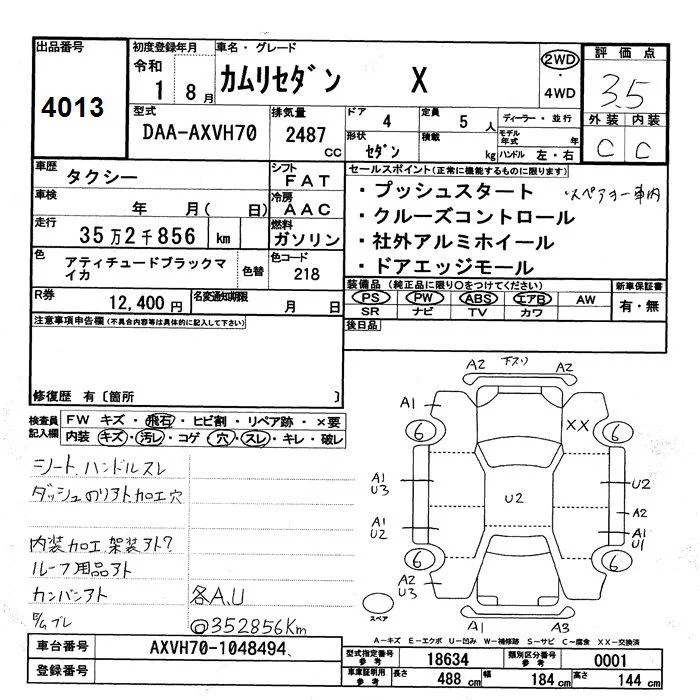 出品番号
4013
初度登録年月
令和
1 8月
車名・グレード
カムリセダン X
2WD
・
4WD
評価点
3.5
外装 内装
C C
型式
DAA-AXVH70
排気量
2487 cc
ドア 4
定員 5 人
形状 セダン
積載 kg
ディーラー・並行
モデル年式 年
ハンドル 左・右
車歴 タクシー
シフト FAT
車検 年 月( 日)
冷房 AAC
走行 35万2千856 km
燃料 ガソリン
色 アティチュードブラックマイカ
色替
色コード 218
R券 12,400円
名変通知期限 月 日
セールスポイント(正常に機能するものに限ります)
・プッシュスタート
・クルーズコントロール
・社外アルミホイール
・ドアエッジモール
スペアキー車内
装備品(純正品に限り○をつけてください)
PS PW ABS エアB AW
SR ナビ TV カワ
新車保証書
有・無
後日品
注意事項申告欄(不具合内容等は具体的に記入して下さい)
修復歴 有〔箇所 〕
検査員記入欄
FW キズ・飛石・ヒビ割・リペア跡・×要
内装 キズ・汚レ・コゲ・穴・スレ・キレ・破レ
シート、ハンドルスレ
ダッシュのリアト加工穴
内装加工、架装アト?
ルーフ用品アト
カンバンアト
各A、U
@352856Km
A2 下スリ A2
A1
XX
6 6
A1
U3
U2
U2
A2
A1
U2
A1
U1
6 6
A2
U3
スペア
A1 A3
A-キズ E-エクボ U-凹み W-補修跡 S-サビ C-腐食 XX-交換済
車台番号 AXVH70-1048494
登録番号
型式指定番号 参考 18634
類別区分番号 参考 0001
車庫証明用 参考 長さ 488 cm 幅 184 cm 高さ 144 cm